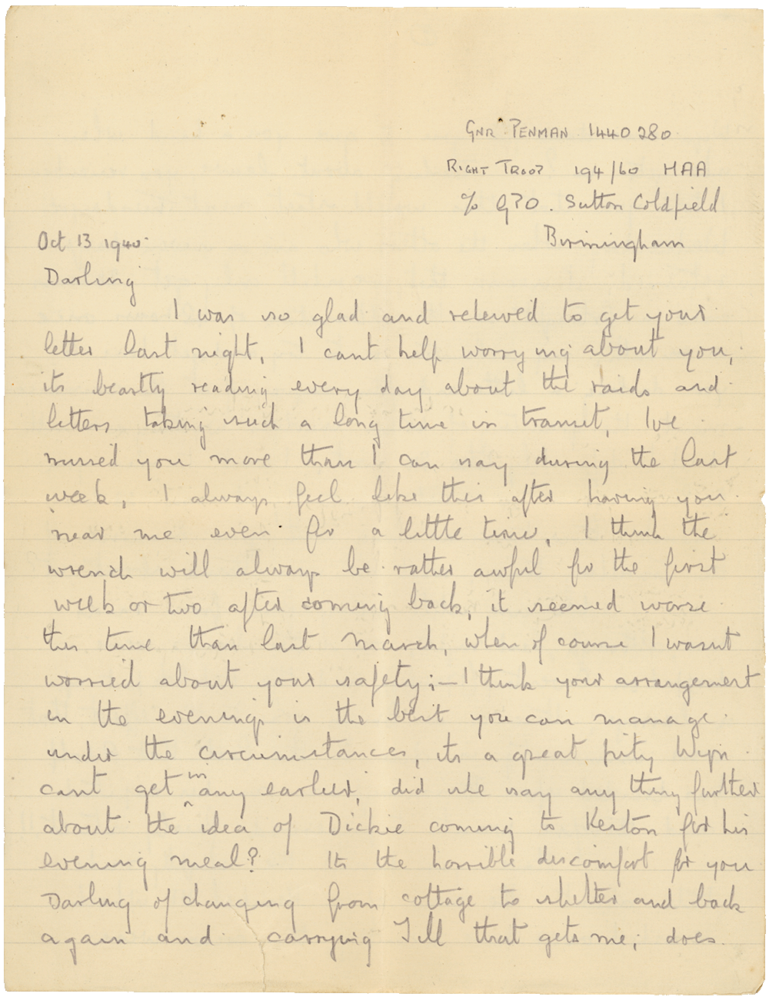 GNR PENMAN 1440280
RIGHT TROOP 194/60 HAA
c/o GPO. Sutton Coldfield
Birmingham
Oct 13 1940.
Darling
I was so glad and relieved to get your
letter last night, I cant help worrying about you,
its beastly reading every day about the raids and
letters taking such a long time in transit, Ive
missed you more than I can say during the last
week, I always feel like this after having you
near me even for a little time, I think the
wrench will always be rather awful for the first
week or two after coming back, it seemed worse
this time than last March, when of course I wasnt
worried about your safety;– I think your arrangement
in the evenings is the best you can manage
under the circumstances, its a great pity Wyn
cant get in any earlier, did she say any thing further
about the idea of Dickie coming to Keston for his
evening meal? Its the horrible discomfort for you
Darling of changing from cottage to shelter and back
again and carrying Jill that gets me, does